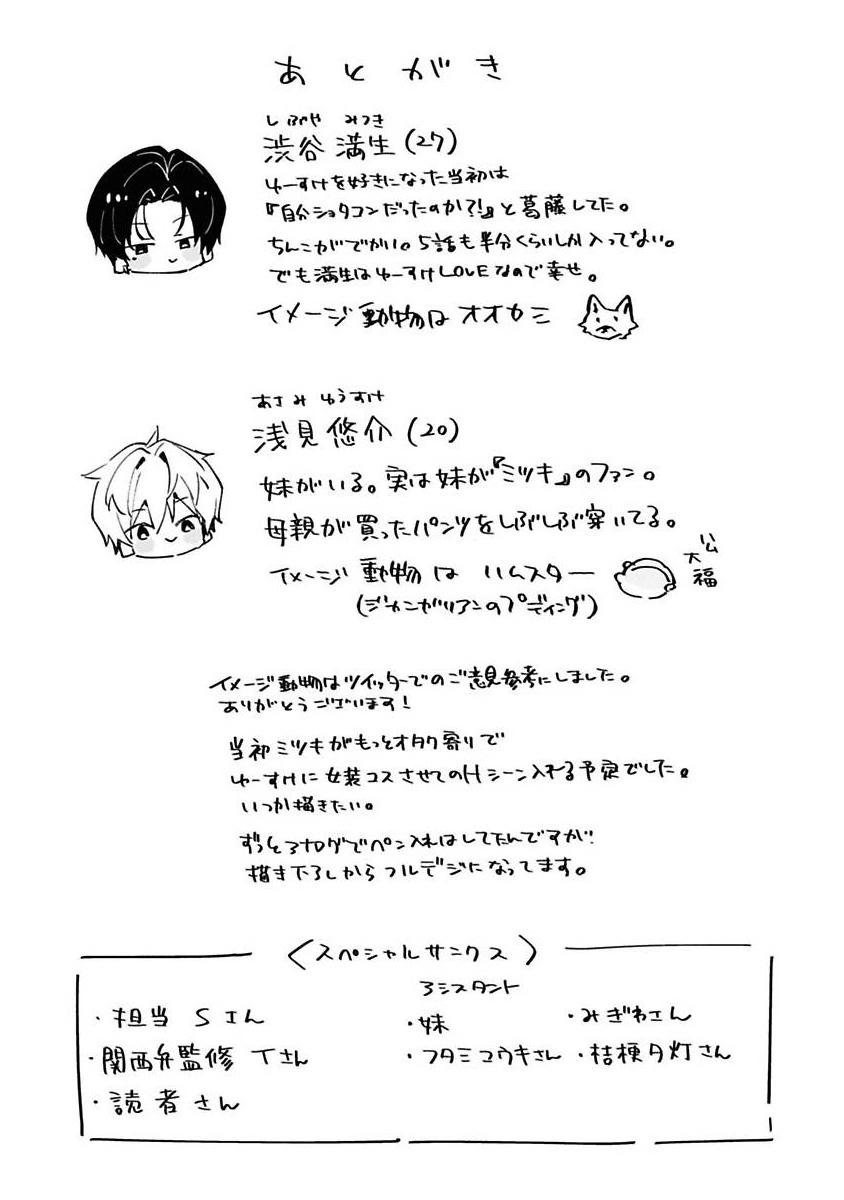 あとがき
しぶや みつき
渋谷 満生(27)
ゆーすけを好きになった当初は
『自分ショタコンだったのか?!』と葛藤してた。
ちんこがでかい。5話も半分くらいしか入ってない。
でも満生はゆーすけLOVEなので幸せ。
イメージ動物はオオカミ
あさみ ゆうすけ
浅見悠介(20)
妹がいる。実は妹が『ミツキ』のファン。
母親が買ったパンツをしぶしぶ穿いてる。
イメージ動物は ハムスター
(ジャンガリアンのプディング)
ハム
大福
イメージ動物はツイッターでのご意見参考にしました。
ありがとうございます!
当初ミツキがもっとオタク寄りで
ゆーすけに女装コスさせてのHシーン入れる予定でした。
いつか描きたい。
ずっとアナログでペン入れはしてたんですが
描き下ろしからフルデジになってます。
〈スペシャルサンクス〉
・担当 Sさん
・関西弁監修 Tさん
・読者さん
アシスタント
・妹
・みぎわさん
・フタミユウキさん
・桔梗夕灯さん